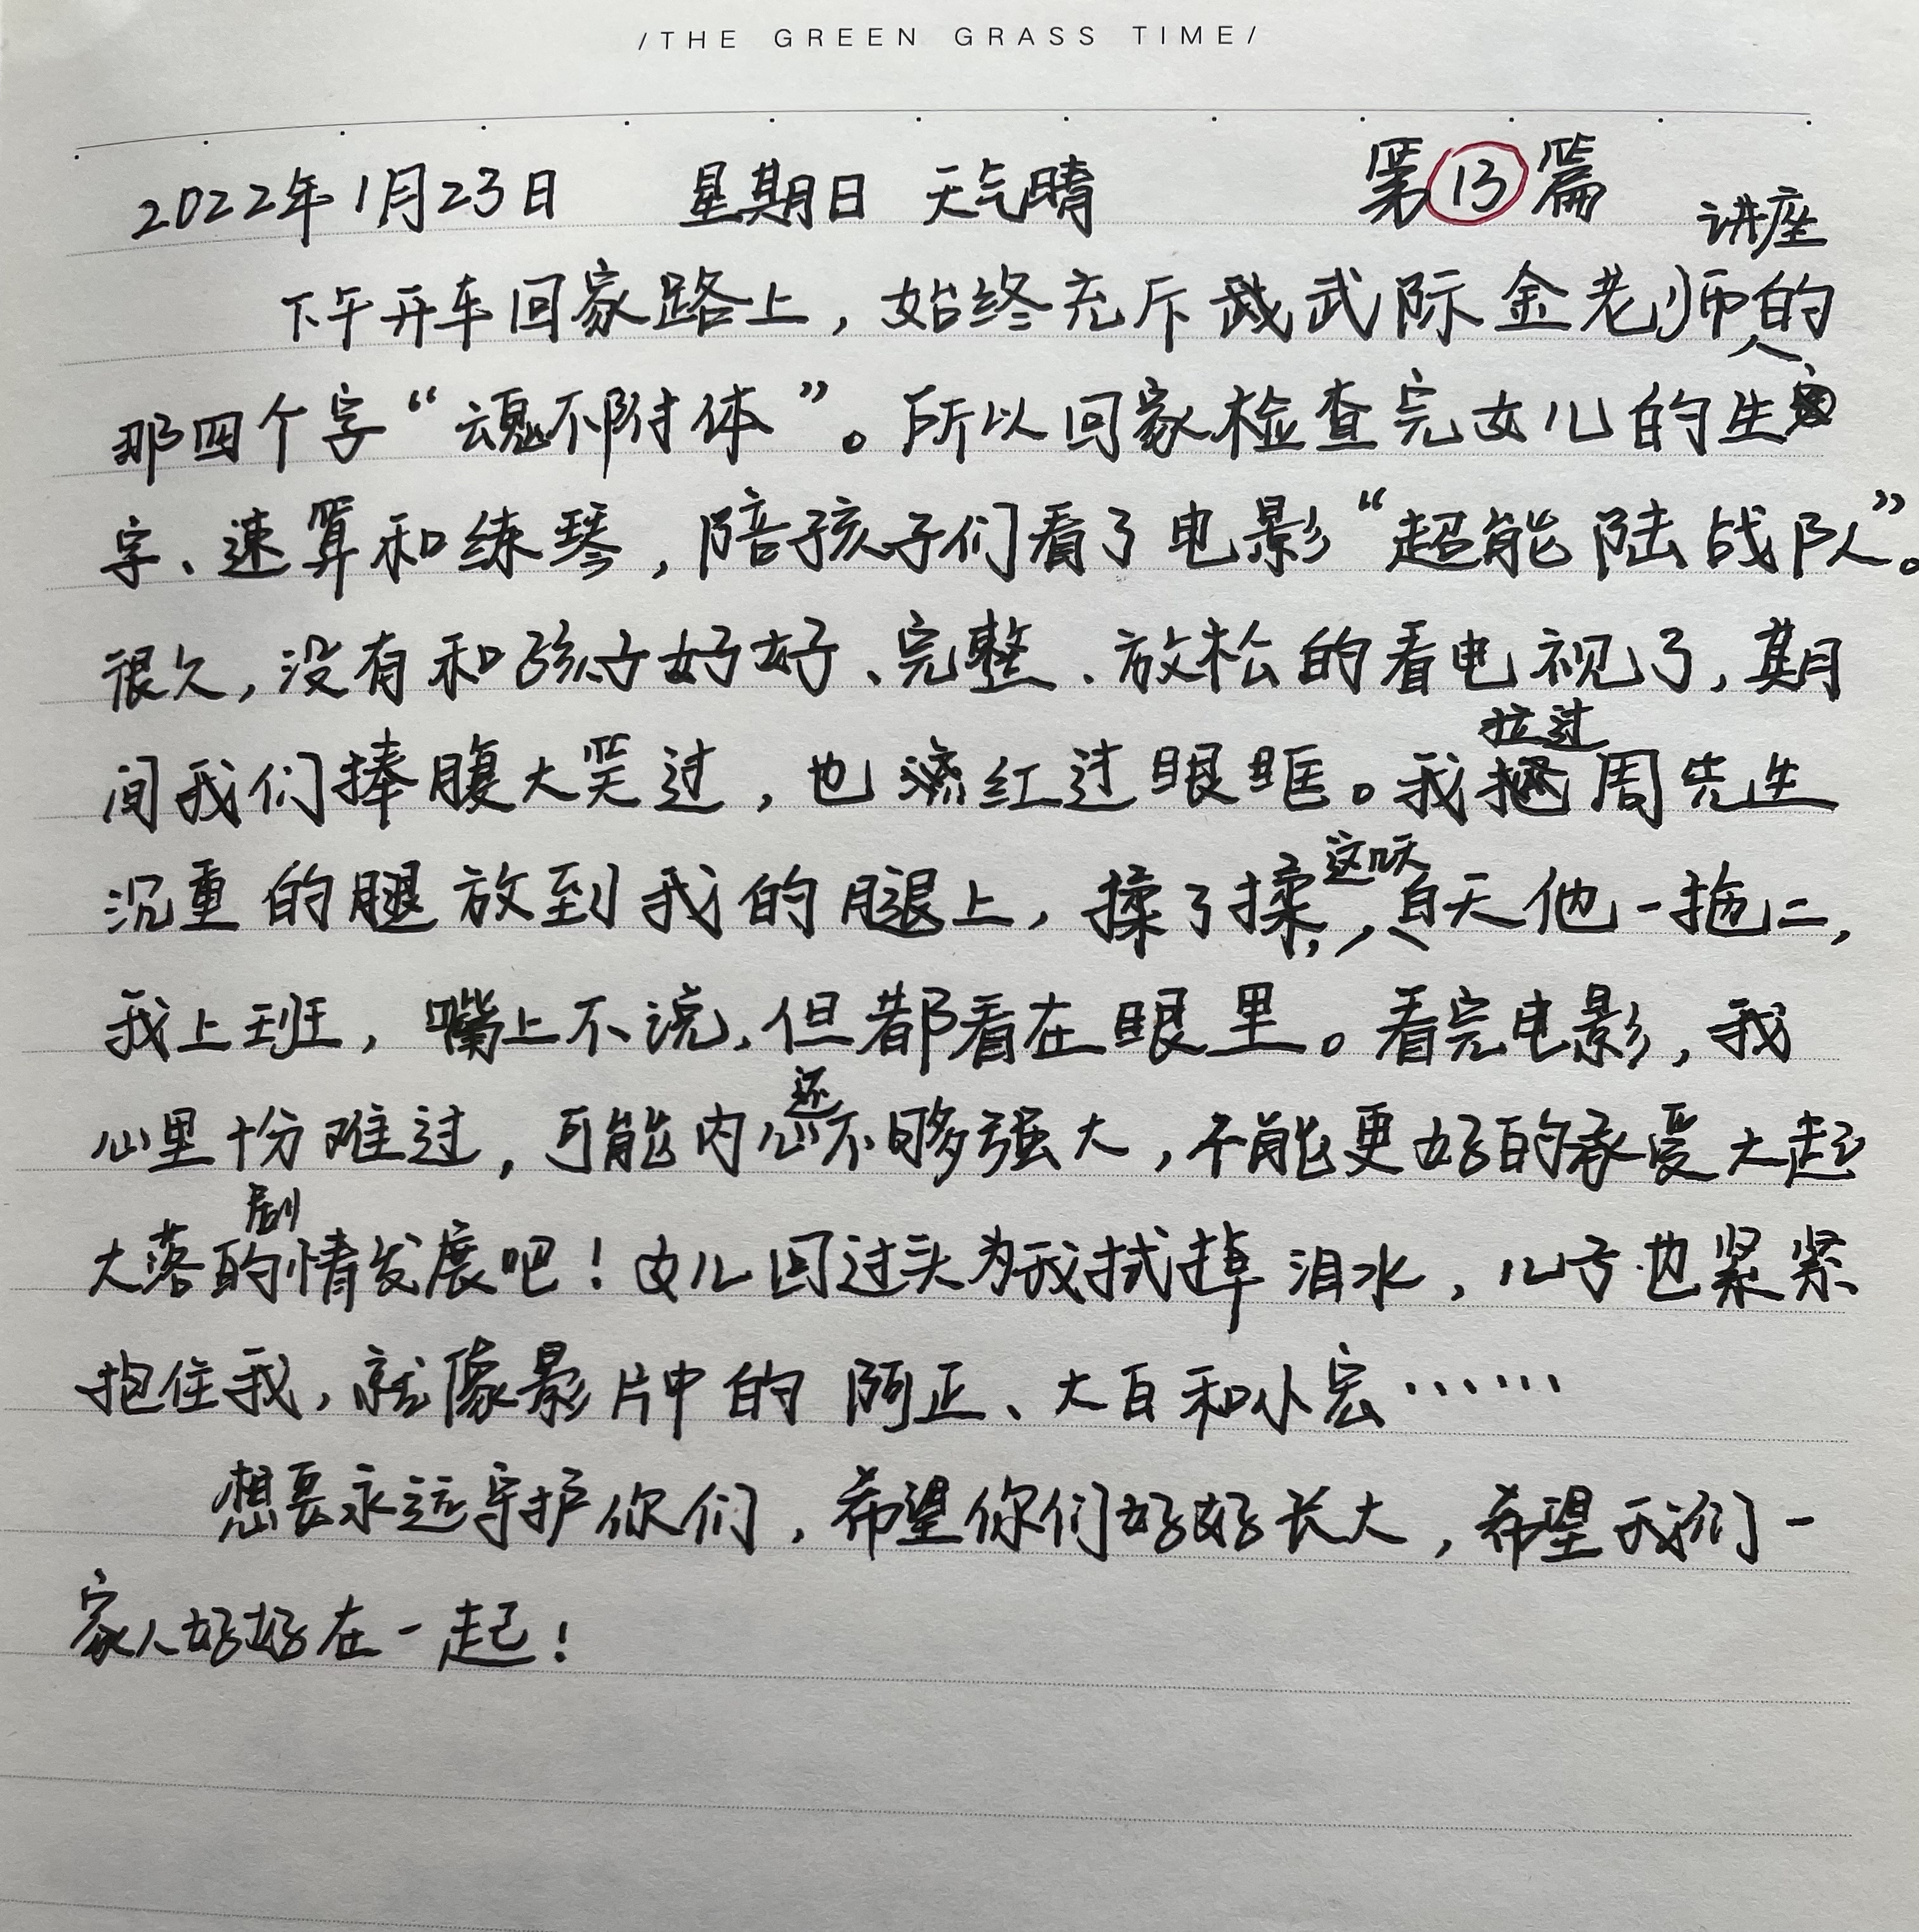 /THE GREEN GRASS TIME/
2022年1月23日 星期日 天气晴 第13篇
讲座
下午开车回家路上，始终充斥武际金老师的
那四个字“魂不附体”。所以回家检查完女儿的生
字、速算和练琴，陪孩子们看了电影“超能陆战队”。
很久，没有和孩子好好、完整、放松的看电视了，期
拉过
间我们捧腹大笑过，也红过眼眶。我周先生
这几天
沉重的腿放到我的腿上，揉了揉，白天他一拖二，
我上班，嘴上不说，但都看在眼里。看完电影，我
还
心里十份难过，可能内心不够强大，不能更好的承受大起
剧
大落的情发展吧！女儿回过头为我拭掉泪水，儿子也紧紧
抱住我，就像影片中的阿正、大白和小宏……
想要永远守护你们，希望你们好好长大，希望我们一
家人好好在一起！